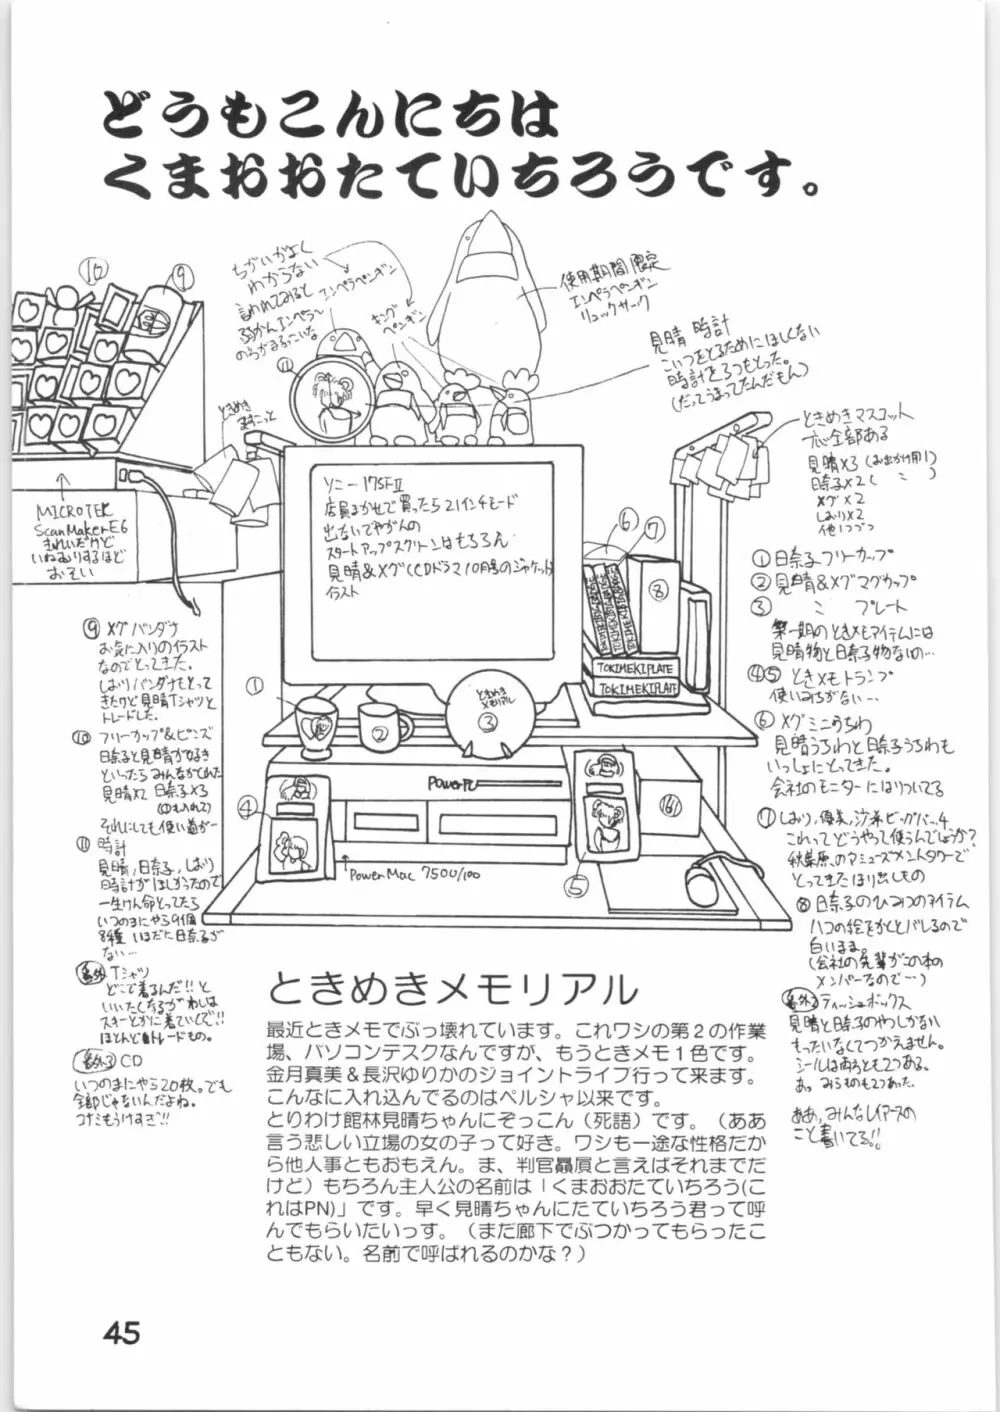 どうもこんにちは
くまおおたていちろうです。
⑩
⑨
ちがいがよく
わからない
言われてみると
のちがまるっこいな
エンペラペンギン
キング
ペンギン
使用期間限定
エンペラペンギン
リュックサーク
見晴時計
こいつをとるためにほしくない
時計を3つもとった。
(だってうまってたんだもん)
⑪
ときめき
ときめきマスコット
全部ある
見晴×3(お出かけ用1)
日奈子×2(〃)
メグ×2
しおり×2
他1つづつ
MICROTEK
ScanMakerE6
きれいだけど
いねむりするほど
おそい
ソニー17SFⅡ
店員まかせで買ったら21インチモード
出ないでやがんの
スタートアップスクリーンはもちろん
見晴&メグ(CDドラマ10月号のジャケット)
イラスト
⑥
⑦
⑧
TOKIMEKIPLATE
TOKIMEKIPLATE
①
②
ときめき
メモリアル
③
PowerPC
④
⑤
⑯
PowerMac 7500/100
①日奈子フリーカップ
②見晴&メグマグカップ
③〃プレート
第一期のときメモアイテムには
見晴物と日奈子物ないの…
④⑤ときメモトランプ
使いみちがない…
⑥メグミニうちわ
見晴うちわと日奈子うちわも
いっしょにとってきた。
会社のモニターにはりついてる
⑦しおり,優美,沙希ビッグバー4
これってどうやって使うんでしょうか?
秋葉原のアミューズメントタワーで
とってきたほり出しもの
⑧日奈子のひみつのアイテム
ハコの絵をかくとバレるので
白いまま。
(会社の先輩がこの本の
メンバーなので…)
番外2ティッシュボックス
見晴と日奈子のやつしかない
もったいなくてつかえません。
シールは両ろとも2つある。
あっみらものも2つあった。
ああ,みんなレイアースの
こと書いてる!!
⑨メグバンダナ
お気に入りのイラスト
なのでとってきた。
しおりバンダナもとって
きたけど見晴Tシャツと
トレードした。
⑩フリーカップ&ピンズ
日奈子と見晴が好き
といったらみんながくれた
見晴×2 日奈子×3
(①も入れて)
それにしても使い道が…
⑪時計
見晴,日奈子,しおり
時計がほしかったので
一生けん命とってたら
いつのまにやら9個
8種 いまだに日奈子が
ない…
番外Tシャツ
どこで着るんだ!!と
いいたくなるがわしは
スキーとかに着ていくぞ!!
ほとんどトレードもの。
番外3 CD
いつのまにやら20枚。でも
全部じゃないんだよね。
コナミもうけすぎ!!
ときめきメモリアル
最近ときメモでぶっ壊れています。これワシの第2の作業
場、パソコンデスクなんですが、もうときメモ1色です。
金月真美&長沢ゆりかのジョイントライブ行って来ます。
こんなに入れ込んでるのはペルシャ以来です。
とりわけ館林見晴ちゃんにぞっこん(死語)です。(ああ
言う悲しい立場の女の子って好き。ワシも一途な性格だか
ら他人事ともおもえん。ま、判官贔屓と言えばそれまでだ
けど)もちろん主人公の名前は「くまおおたていちろう(こ
れはPN)」です。早く見晴ちゃんにたていちろう君って呼
んでもらいたいっす。(まだ廊下でぶつかってもらったこ
ともない。名前で呼ばれるのかな?)
45